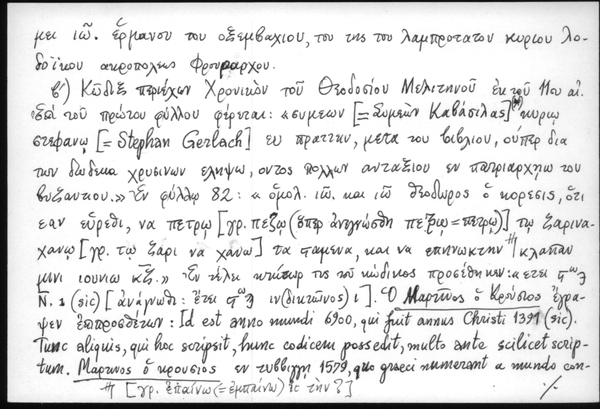 μει ιῶ. ἕρμανου του οξεμβαχιου, του της του λαμπροτατου κυριου λο-
δοΐκου ακροπολεως Φρουραρχου.
β') Κῶδιξ περιέχων Χρονικὸν τοῦ Θεοδοσίου Μελιτηνοῦ ἐκ τοῦ 11ου αἰ.
τοῦ πρώτου φύλλου φέρεται: «συμεων [= Συμεὼν Καβάσιλας] κυριῳ
στεφανῳ [= Stephan Gerlach] ευ πραττειν, μετα του βιβλιου, οὗπερ δια
των δωδεκα χρυσινων εληψω, οντος πολλων ανταξιου εν πατριαρχηω του
βυζαντιου.» Ἐν φύλλῳ 82: «ὁμολ. ιῶ. και ιῶ θεοδωρος ὁ κορεσις, ὅτι
εαν εὕρεθι, να πετρῳ [γρ. πεζῳ (ὅπερ ἀνεγνώσθη πεζῳ = πετρῳ)] τῳ ζαρινα-
χανῳ [γρ. τῳ ζαρι να χάνω] τα παμενα, και να επηνωκτην # κλαπαυ
μινι ιουνιω κζ.» Ἐν τέλει τις τοῦ κώδικος προσέθηκεν: «ετει ϛω̅
N. 1 (sic) [ἀνάγνωθι: ἔτει ϛω̅ ιν(δικτιῶνος) ι]. Ὁ Μαρτῖνος ὁ Κρούσιος ἔγρα-
ψεν ἐπιπροσθέτων: Id est anno mundi 6900, qui fuit annus Christi 1391 (sic).
Tunc aliquis, qui hoc scripsit, hunc codicem possedit, multo ante scilicet scrip-
tum. Μαρτινος ὁ κρουσιος εν τυβιγγῃ 1579, quo graeci numerant a mundo con-
# [γρ. ἐπαίνω (= ἐμπαίνω) ἰς τὴν ?] ·/·